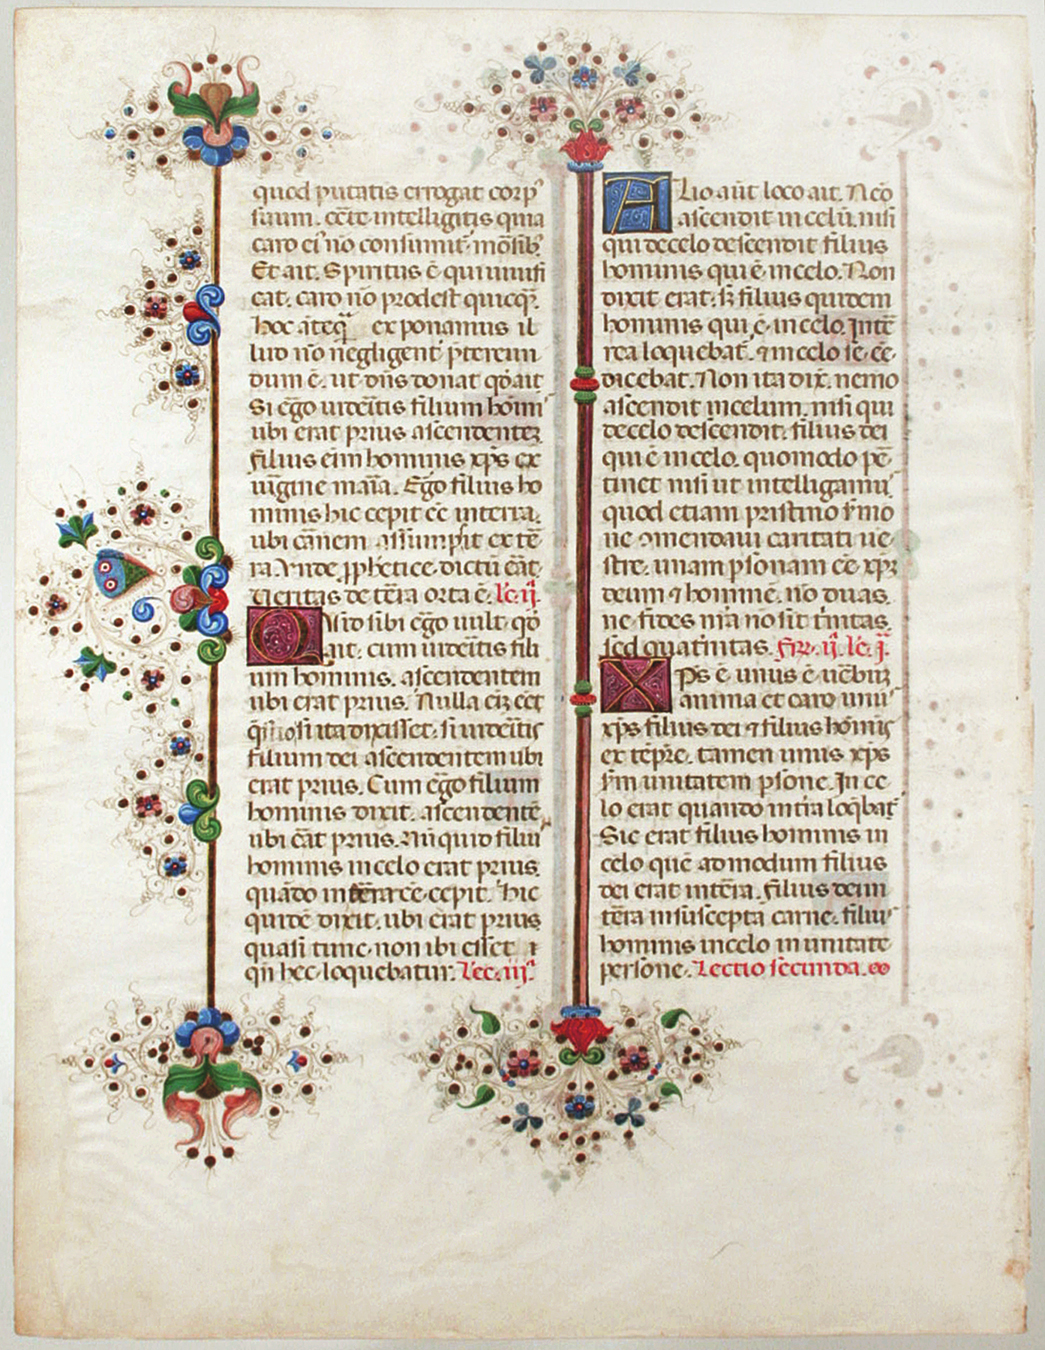 quod putatis erogat corp⁹
suum. cẽte intelligitis quia
caro ei⁹ nõ consumit᷑ mõsib⁹.
Et ait. Spiritus ẽ qui uiuifi
cat. caro nõ prodest quicq̃.
hoc ãteq̃ exponamus il
lud nõ negligent᷑ p̃tereun
dum ẽ. ut dñs donat qđ ait
Si ẽgo uidẽtis filium hõmi⁹
ubi erat prius ascendentez
filius eĩm hominis xp̃s ex
uĩgine maĩa. Ego filius ho
minis hic cepit eẽ interra.
ubi cãnem assumpsit ex tẽ
ra. Vnde ꝓphetice dictũ ẽat.
Ueritas de tẽra orta ẽ. Lẽ. ij.
Quid sibi ẽgo uult. qđ
ait. cum uidẽtis fili
um hominis. ascendentem
ubi erat prius. Nulla eĩz eẽt
q̃stio si ita dixisset. si uidẽtis
filium dei ascendentem ubi
erat prius. Cum ẽgo filium
hominis dixit. ascendentẽ
ubi ẽat prius. Nũquid filiu⁹
hominis in celo erat prius.
quãdo in tẽra eẽ cepit. hic
quidẽ dixit. ubi ẽrat prius
quasi tunc non ibi esset ⁊
qñ hec loquebatur. Lec. iij.ª
Alio aũt loco ait. Nẽo
ascendit in celũ. nisi
qui de celo descendit filius
hominis qui ẽ in celo. Non
dixit erat. sꝫ filius quidem
hominis qui ẽ in celo. Intẽ
rra loquebat᷑. ⁊ in celo sẽ eẽ
dicebat. Non ita dix̃. nemo
ascendit in celum. nisi qui
de celo descendit. filius dei
qui ẽ in celo. quomodo pẽ
tinet nisi ut intelligamu⁹
quod etiam pristino s̃mo
ne ꝯmendaui caritati ue
stre. unam p̃sonam eẽ xp̃z
deum ⁊ hominẽ. nõ duas.
ne fides nr̃a nõ sit t̃nitas.
sed quat̃nitas. Fr̃. ij. lẽ. j.
Xps ẽ unus ẽ uẽbuz
anima et caro unu⁹
xp̃s filius dei ⁊ filius hõmis
ex tẽpr̃e. tamen unus xp̃s
s̃m unitatem p̃sone. In ce
lo erat quando intr̃a loq̃bat᷑
Sic erat filius hominis in
celo quẽ admodum filius
dei erat in tẽra. filius dei in
tẽra in suscepta carne. filiu⁹
hominis in celo in unitate
persone. Lectio secunda.